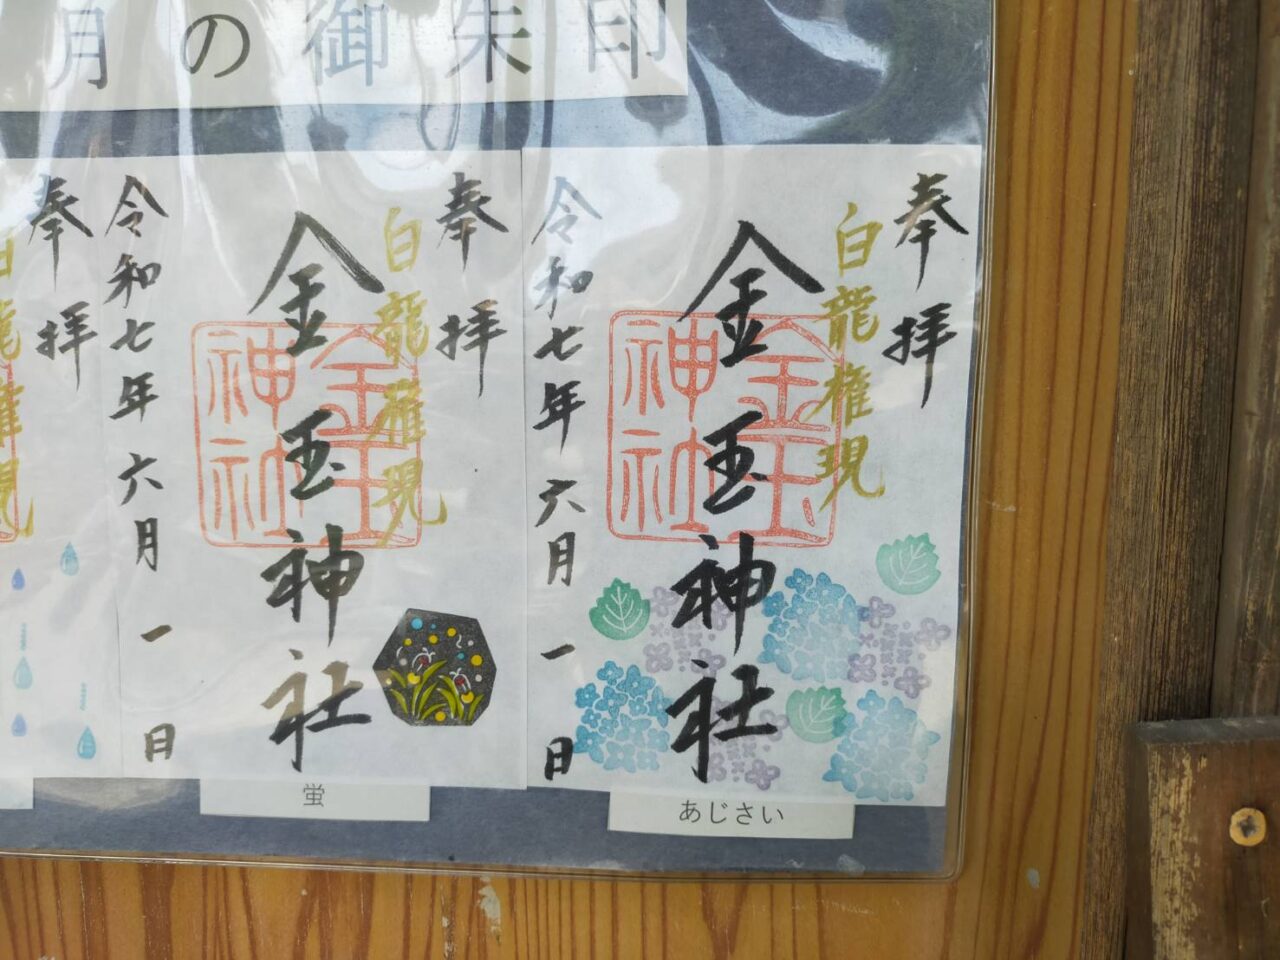 月の御朱印
奉拝
白龍権現
金玉神社
令和七年六月一日
金玉神社
あじさい
奉拝
白龍権現
金玉神社
令和七年六月一日
金玉神社
蛍
奉拝
白龍権現